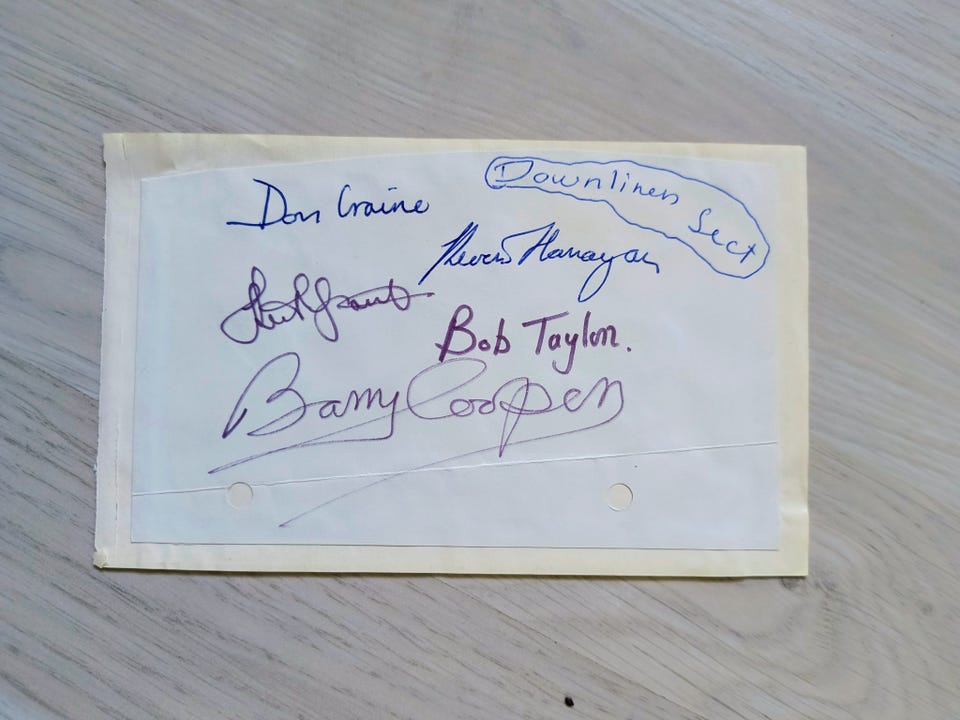 Downliners Sect
Don Craine
Kevin Flanagan
Keith Grant
Bob Taylor.
Barry Cooper